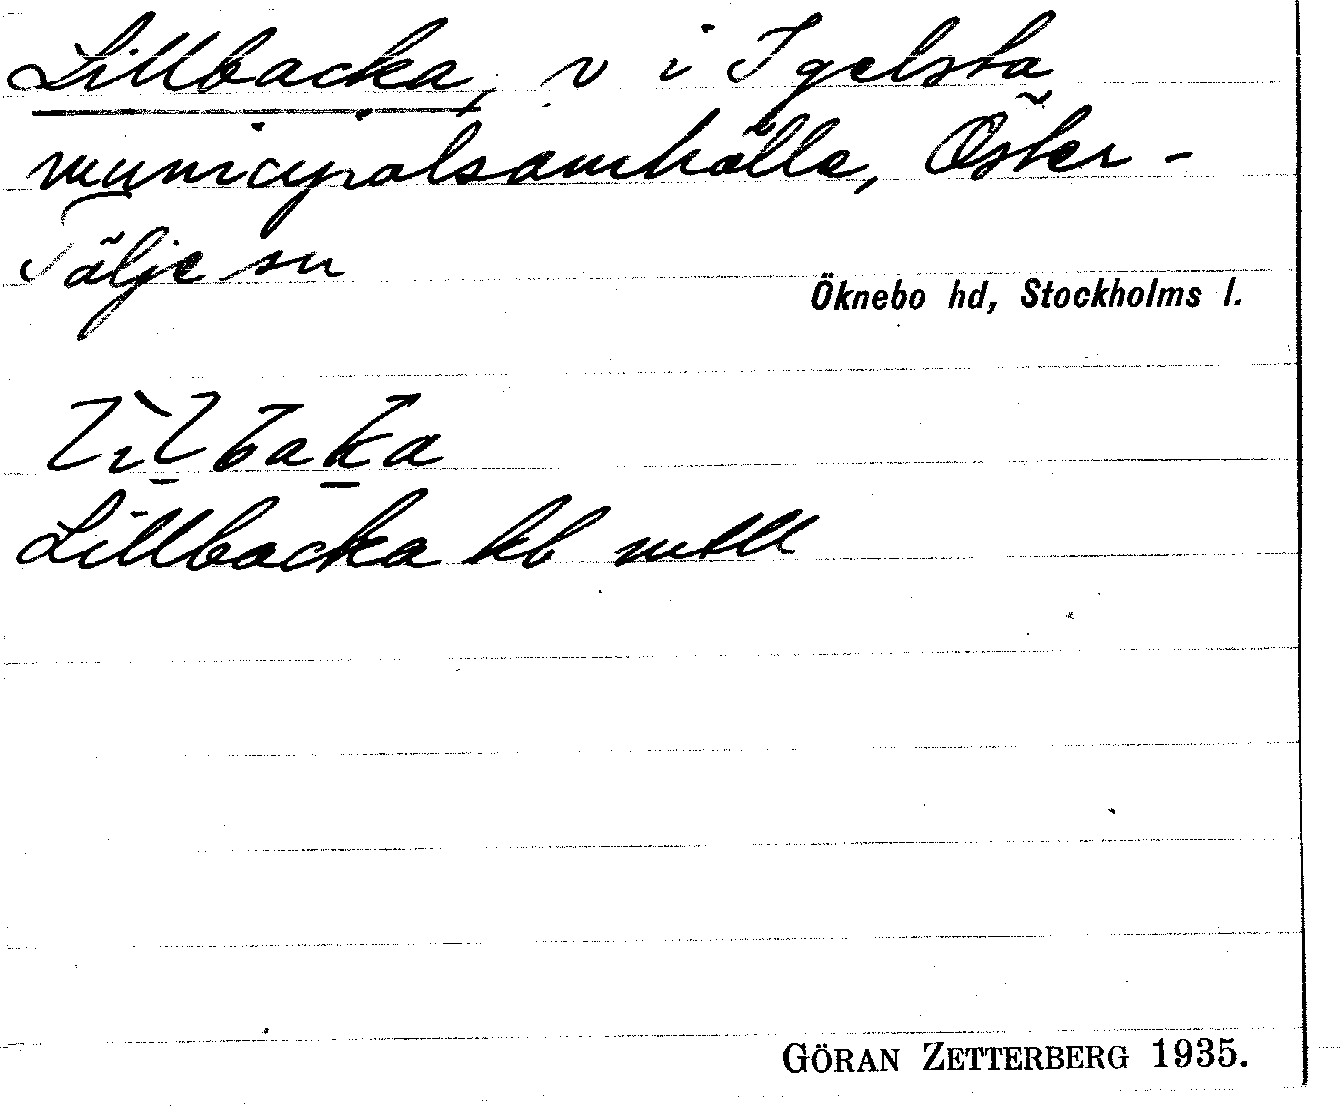 Lillbacka, v i Igelsta
municipalsamhälle, Öster-
Tälje sn
Öknebo hd, Stockholms l.
lìlbaka
Lillbacka kb mtll
GÖRAN ZETTERBERG 1935.